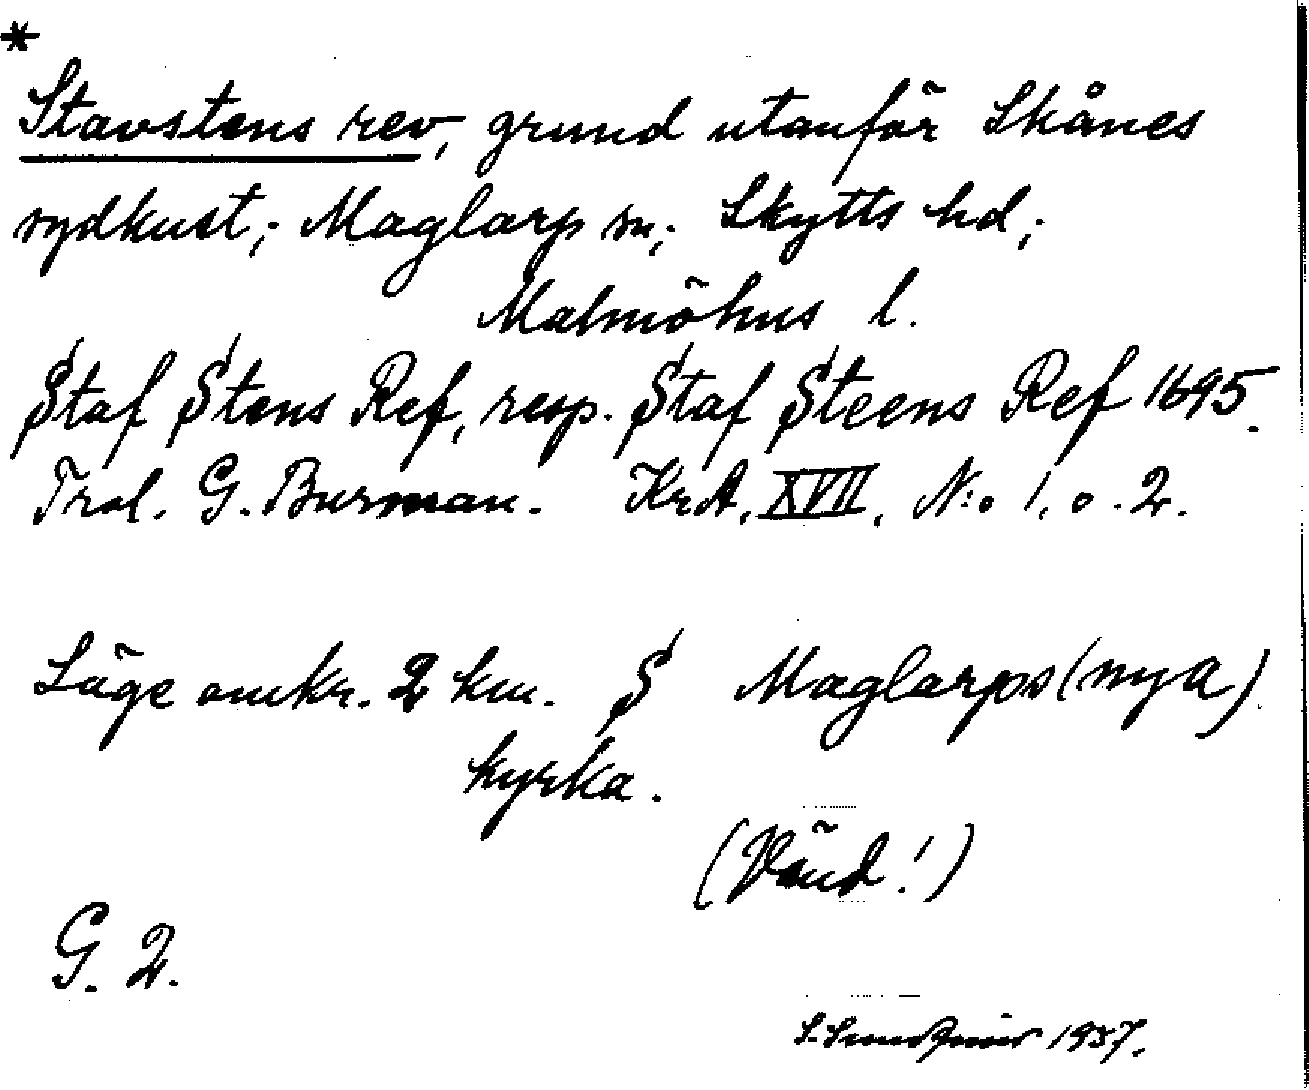 *
Stavstens rev, grund utanför Skånes
sydkust; Maglarp sn; Skytts hd;
Malmöhus l.
Staf Stens Ref, resp. Staf Steens Ref 1695.
Trol. G. Burman. KrA, XVII, N:o 1. o. 2.
Läge omkr. 2 km. S Maglarps (nya)
kyrka.
(Vänd!)
G. 2.
1957.